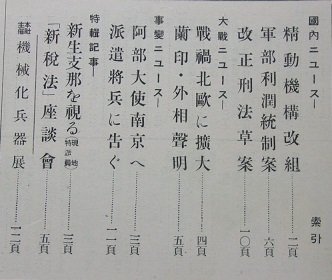 索引
國內ニュース―
精動機構改組……二頁
軍部利潤統制案……六頁
改正刑法草案……一〇頁
大戰ニュース―
戰禍北歐に擴大……四頁
蘭印・外相聲明……五頁
事變ニュース―
阿部大使南京へ……三頁
派遣將兵に告ぐ……一一頁
特輯記事―
新生支那を視る 現地特派員……三頁
「新税法」座談會……五頁
機械化兵器展……一二頁